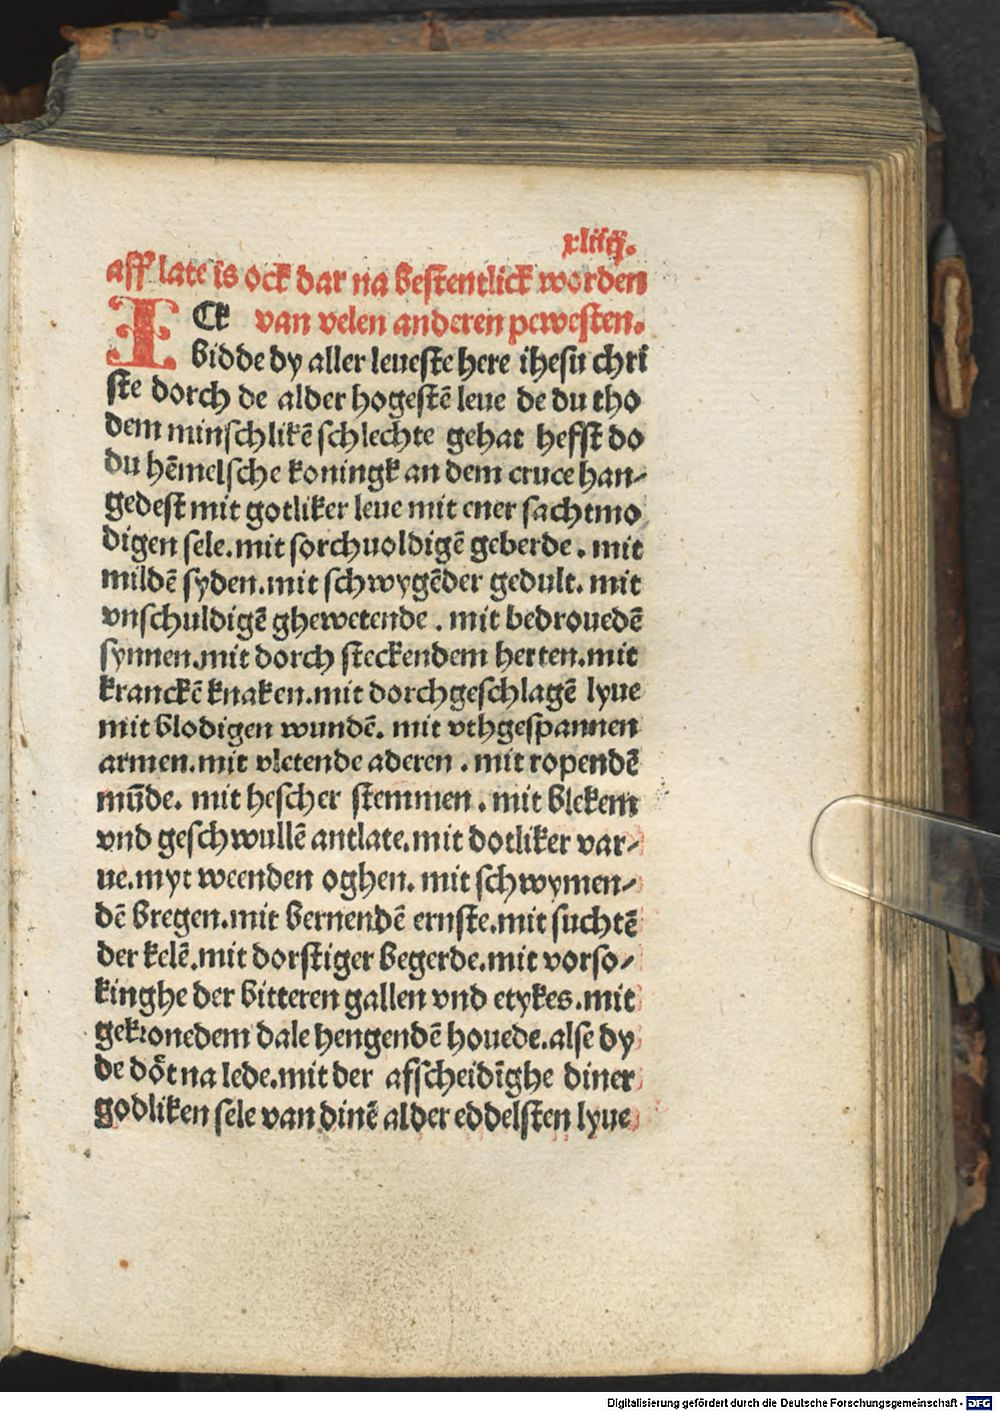 xliiij.
afflate is ock dar na bestentlick worden
ICk van velen anderen pewesten.
bidde dy aller leueste here ihesu chri
ste dorch de alder hogestē leue de du tho
dem minschlikē schlechte gehat hefst do
du hēmelsche koningk an dem cruce han-
gedest mit gotliker leue mit ener sachtmo
digen sele.mit sorchuoldigē geberde. mit
mildē syden.mit schwygēder gedult. mit
vnschuldigē ghewetende. mit bedrouedē
synnen.mit dorch steckendem herten.mit
kranckē knaken.mit dorchgeschlagē lyue
mit blodigen wundē. mit vthgespannen
armen.mit vletende aderen. mit ropendē
mūde. mit hescher stemmen. mit blekem
vnd geschwullē antlate.mit dotliker var-
ue.myt weenden oghen. mit schwymen-
dē bregen.mit bernendē ernste.mit suchtē
der kelē.mit dorstiger begerde.mit vorso-
kinghe der bitteren gallen vnd etykes.mit
gekronedem dale hengendē houede.alse dy
de dot na lede.mit der afscheidīghe diner
godliken sele van dinē alder eddelsten lyue
Digitalisierung gefördert durch die Deutsche Forschungsgemeinschaft - DFG